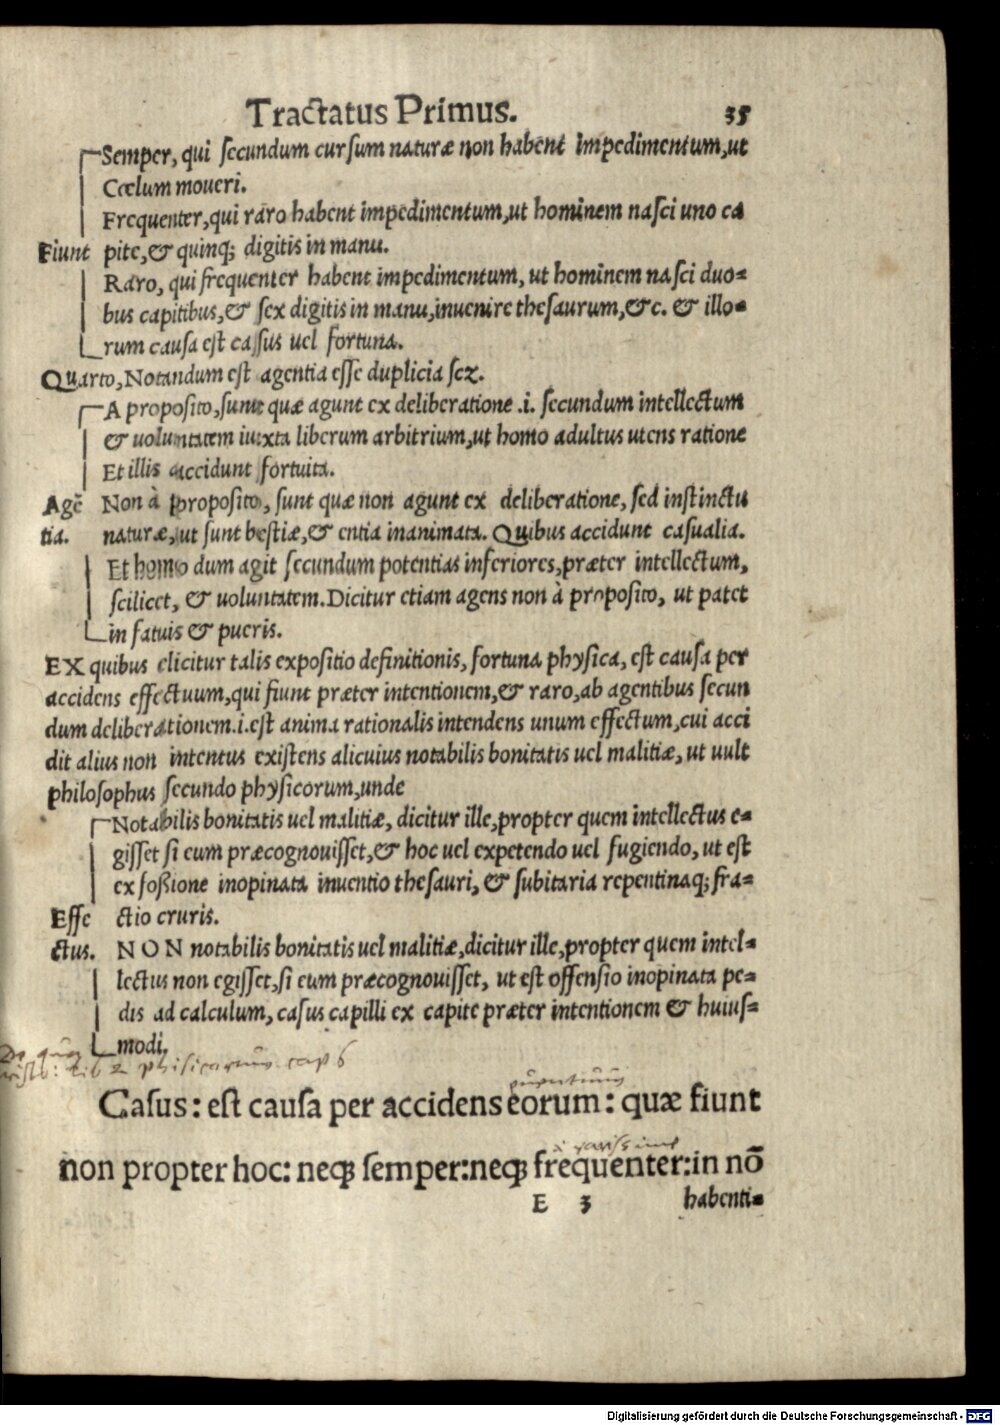 Tractatus Primus. 35
Semper, qui secundum cursum naturæ non habent impedimentum, ut
Cœlum moueri.
Frequenter, qui raro habent impedimentum, ut hominem nasci uno ca
Fiunt pite, & quinq; digitis in manu.
Raro, qui frequenter habent impedimentum, ut hominem nasci duo=
bus capitibus, & sex digitis in manu, inuenire thesaurum, &c. & illo=
rum causa est cassus uel fortuna.
Quarto, Notandum est agentia esse duplicia scz.
A proposito, sunt quæ agunt ex deliberatione .i. secundum intellectum
& uoluntatem iuxta liberum arbitrium, ut homo adultus utens ratione
Et illis accidunt fortuita.
Agẽ Non à proposito, sunt quæ non agunt ex deliberatione, sed instinctu
tia. naturæ, ut sunt bestiæ, & entia inanimata. Quibus accidunt casualia.
Et homo dum agit secundum potentias inferiores, præter intellectum,
scilicet, & uoluntatem. Dicitur etiam agens non à proposito, ut patet
in fatuis & pueris.
EX quibus elicitur talis expositio definitionis, fortuna physica, est causa per
accidens effectuum, qui fiunt præter intentionem, & raro, ab agentibus secun
dum deliberationem .i. est anima rationalis intendens unum effectum, cui acci
dit alius non intentus existens alicuius notabilis bonitatis uel malitiæ, ut uult
philosophus secundo physicorum, unde
Notabilis bonitatis uel malitiæ, dicitur ille, propter quem intellectus e=
gisset si eum præcognouisset, & hoc uel expetendo uel fugiendo, ut est
ex foßione inopinata inuentio thesauri, & subitaria repentinaq; fra=
Effe ctio cruris.
ctus. NON notabilis bonitatis uel malitiæ, dicitur ille, propter quem intel=
lectus non egisset, si eum præcognouisset, ut est offensio inopinata pe=
dis ad calculum, casus capilli ex capite præter intentionem & huius=
modi.
lib 2 phisicorum cap 6
Casus: est causa per accidens eorum: quæ fiunt
rarissime
non propter hoc: neq; semper: neq; frequenter: in nõ
E 3 habenti=
Digitalisierung gefördert durch die Deutsche Forschungsgemeinschaft - DFG